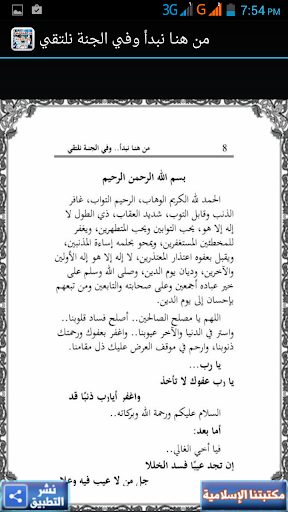 3G G 7:54 PM
من هنا نبدأ وفي الجنة نلتقي
من هنا نبدأ.. وفي الجنة نلتقي 8
بسم الله الرحمن الرحيم
الحمد لله الكريم الوهاب، الرحيم التواب، غافر
الذنب وقابل التوب، شديد العقاب، ذي الطول لا
إله إلا هو، يحب التوابين ويحب المتطهرين، ويغفر
للمخطئين المستغفرين، ويمحو بحلمه إساءة المذنبين،
ويقبل بعفوه اعتذار المعتذرين، لا إله إلا هو إله الأولين
والآخرين، وديان يوم الدين، وصلى الله وسلم على
خير عباده أجمعين وعلى صحابته والتابعين ومن تبعهم
بإحسان إلى يوم الدين.
اللهم يا مصلح الصالحين.. أصلح فساد قلوبنا..
واستر في الدنيا والآخر عيوبنا.. واغفر بعفوك ورحمتك
ذنوبنا، وارحم في موقف العرض عليك ذل مقامنا.
يا رب...
يا رب عفوك لا تأخذ
واغفر أيارب ذنبًا قد
السلام عليكم ورحمة الله وبركاته..
أما بعد:
فيا أخي الغالي..
إن تجد عيبًا فسد الخللا
جل من لا عيب فيه وعلا
نشر
التطبيق
مكتبتنا الإسلامية